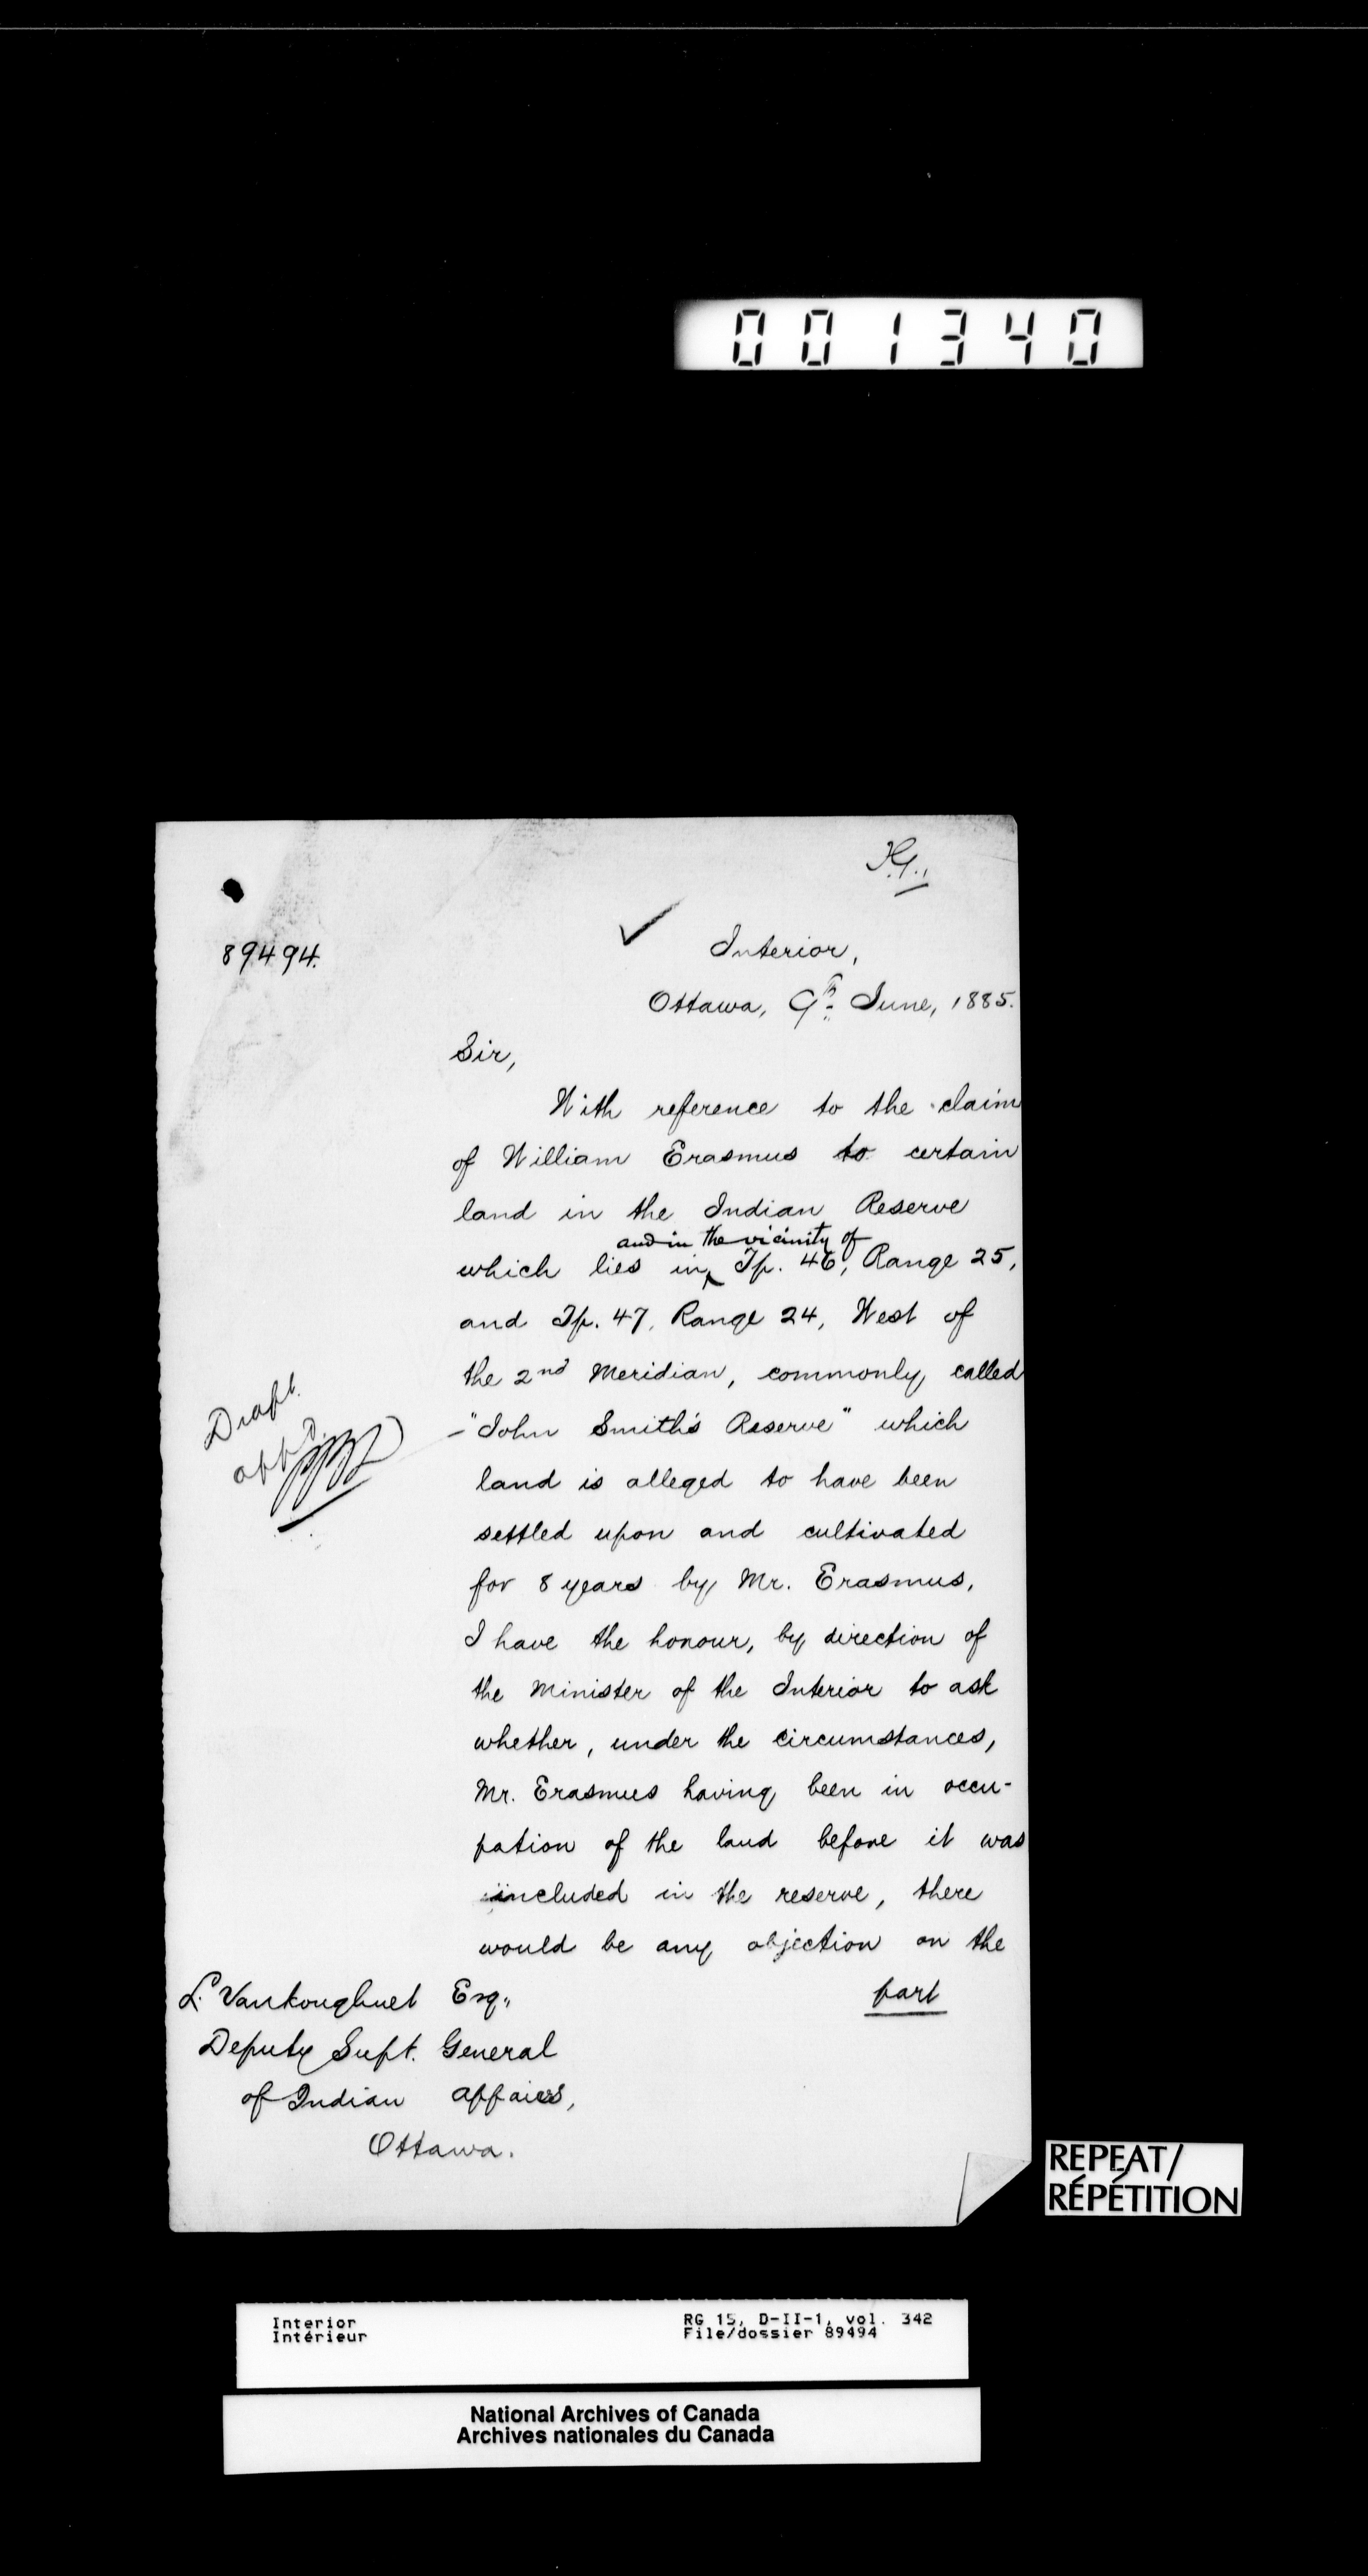 001340
89494.
Interior,
Ottawa, 9th June, 1885.
Sir,
With reference to the claim
of William Erasmus to certain
land in the Indian Reserve
and in the vicinity of
which lies in Tp. 46, Range 25,
and Tp. 47, Range 24, West of
the 2nd Meridian, commonly called
"John Smith's Reserve" which
land is alleged to have been
settled upon and cultivated
for 8 years by Mr. Erasmus,
I have the honour, by direction of
the Minister of the Interior to ask
whether, under the circumstances,
Mr. Erasmus having been in occu-
pation of the land before it was
included in the reserve, there
would be any objection on the
part
Draft
appd.
L. Vankoughnet Esq.,
Deputy Supt. General
of Indian Affairs,
Ottawa.
REPEAT/
RÉPÉTITION
Interior
Intérieur
RG 15, D-II-1, vol. 342
File/dossier 89494
National Archives of Canada
Archives nationales du Canada